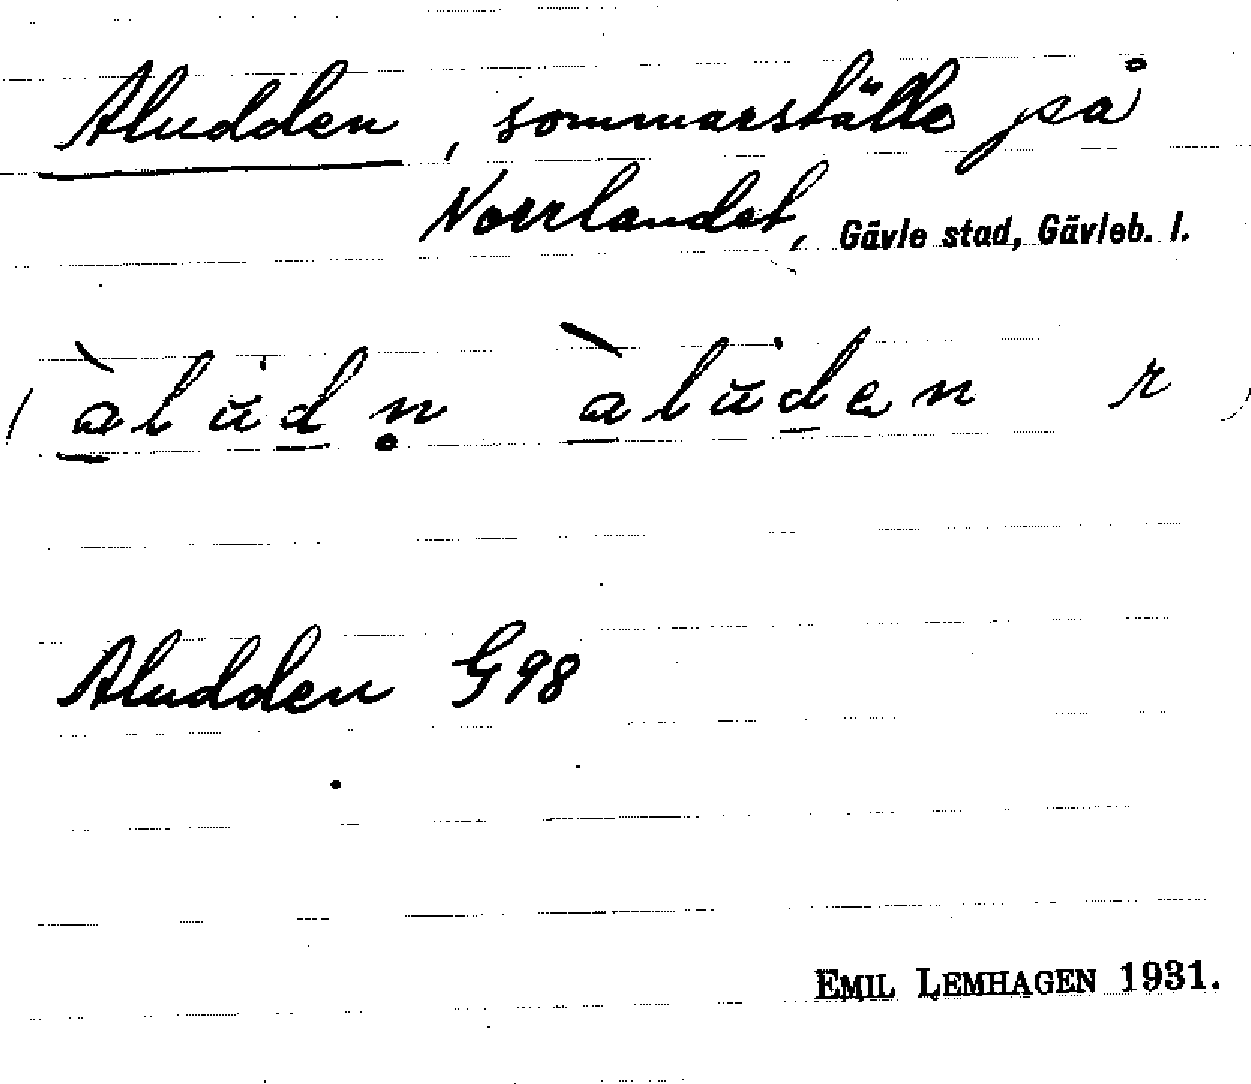 Aludden, sommarställe på
Norrlandet, Gävle stad, Gävleb. l.
(àlŭdṇ àlŭden r)
Aludden G98
EMIL LEMHAGEN 1931.